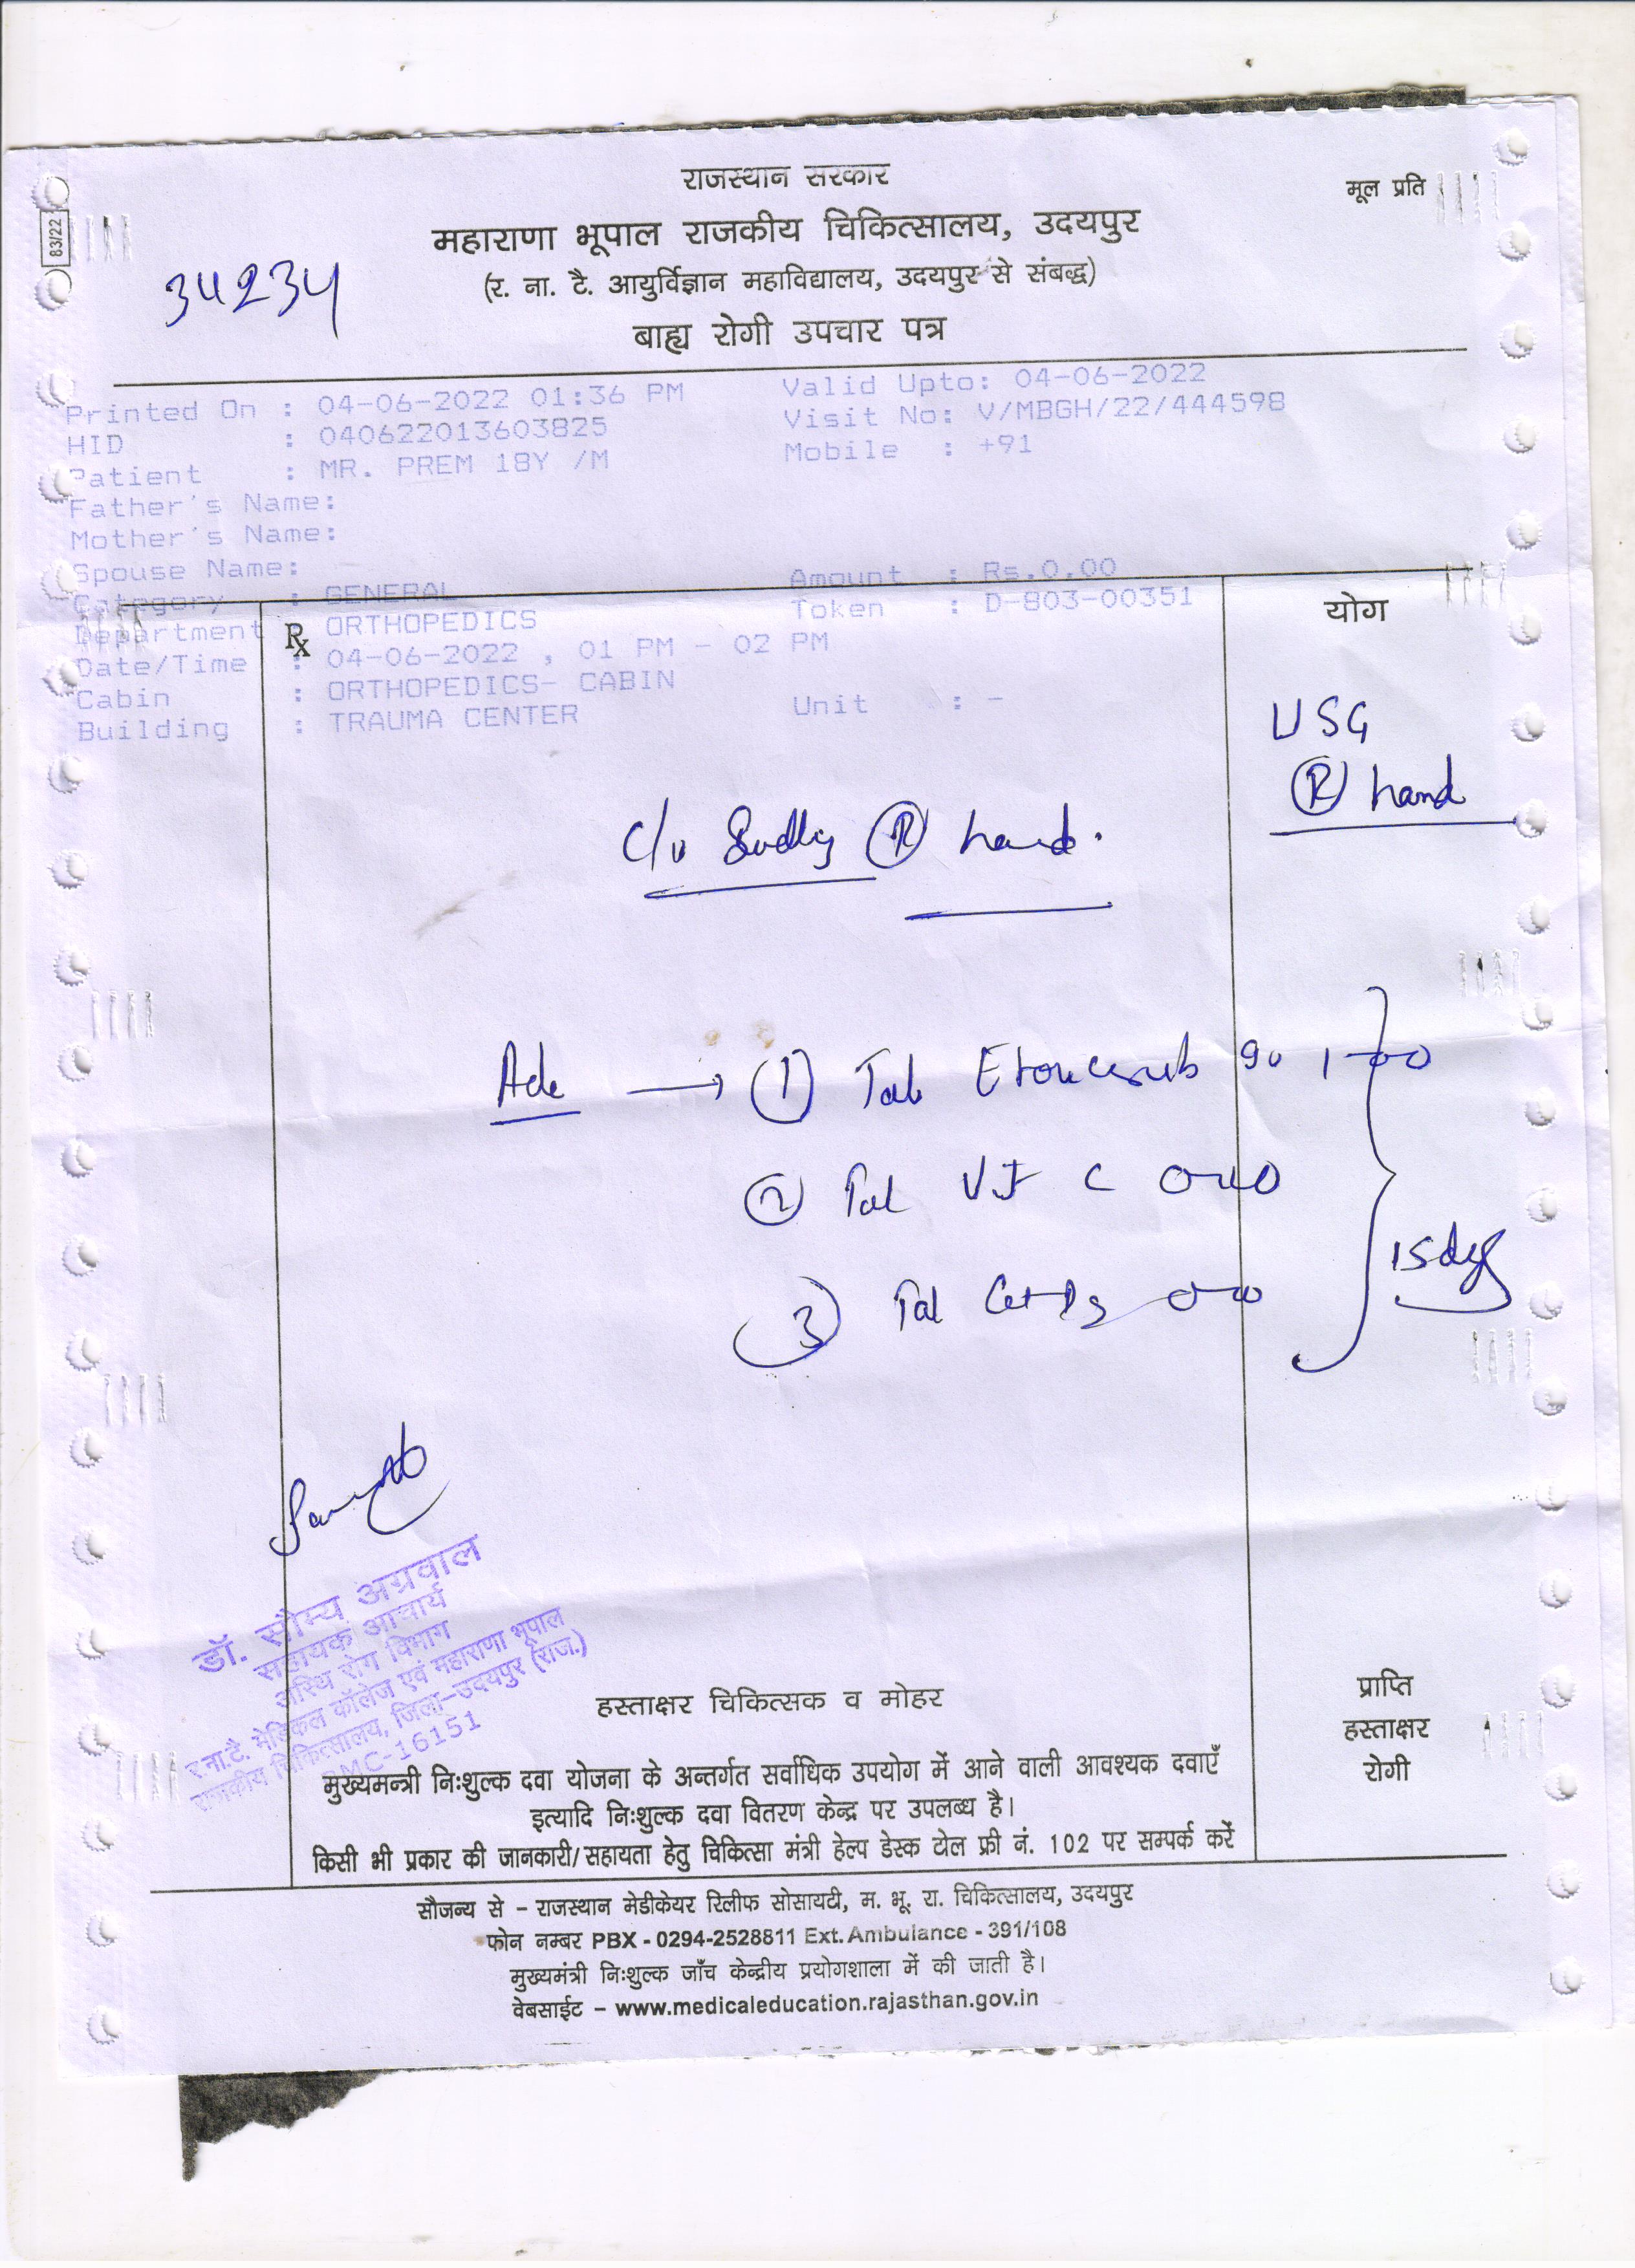 राजस्थान सरकार
मूल प्रति
83/22
महाराणा भूपाल राजकीय चिकित्सालय, उदयपुर
34234
(र. ना. टै. आयुर्विज्ञान महाविद्यालय, उदयपुर से संबद्ध)
बाह्य रोगी उपचार पत्र
Printed On : 04-06-2022 01:36 PM Valid Upto: 04-06-2022
HID : 040622013603825 Visit No: V/MBGH/22/444598
Patient : MR. PREM 18Y /M Mobile : +91
Father's Name:
Mother's Name:
Spouse Name:
Category : GENERAL Amount : Rs.0.00
Department : ORTHOPEDICS Token : D-803-00351
Rx
योग
Date/Time : 04-06-2022 , 01 PM - 02 PM
Cabin : ORTHOPEDICS- CABIN
Building : TRAUMA CENTER Unit : -
USG
(R) hand
(R) hand.
(1) Tab 90
(2) Tab
(3) Tab
15 days
डॉ. सौम्य अग्रवाल
सहायक आचार्य
अस्थि रोग विभाग
र.ना.टै. मेडिकल कॉलेज एवं महाराणा भूपाल
राजकीय चिकित्सालय, जिला-उदयपुर (राज.)
RMC-16151
हस्ताक्षर चिकित्सक व मोहर
प्राप्ति
हस्ताक्षर
रोगी
मुख्यमन्त्री निःशुल्क दवा योजना के अन्तर्गत सर्वाधिक उपयोग में आने वाली आवश्यक दवाएँ
इत्यादि निःशुल्क दवा वितरण केन्द्र पर उपलब्ध है।
किसी भी प्रकार की जानकारी/सहायता हेतु चिकित्सा मंत्री हेल्प डेस्क टोल फ्री नं. 102 पर सम्पर्क करें
सौजन्य से - राजस्थान मेडीकेयर रिलीफ सोसायटी, म. भू. रा. चिकित्सालय, उदयपुर
फोन नम्बर PBX - 0294-2528811 Ext. Ambulance - 391/108
मुख्यमंत्री निःशुल्क जाँच केन्द्रीय प्रयोगशाला में की जाती है।
वेबसाईट - www.medicaleducation.rajasthan.gov.in